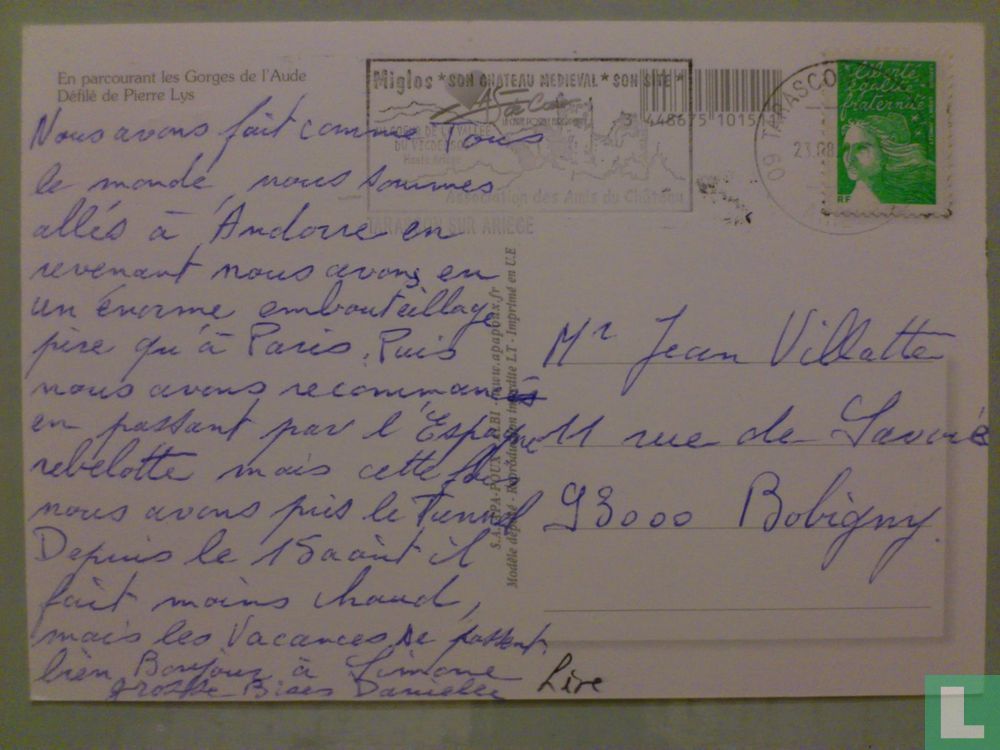 En parcourant les Gorges de l'Aude
Défilé de Pierre Lys
Nous avons fait comme Tous
le monde, nous sommes
allés à Andorre en
revenant nous avons eu
un énorme embouteillage
pire qu'à Paris. Puis
nous avons recommancé
en passant par l'Espagne
rebelotte mais cette fois
nous avons pris le Tunnel
Depuis le 15 août il
fait moins chaud,
mais les Vacances se passent
bien Bonjour à Simone
grosse Bises
Lire
Miglos * SON CHATEAU MEDIEVAL * SON SITE *
Haute Ariège
Association des Amis du Château
TARASCON SUR ARIEGE
3 448675 1015
09 TARASCO
23.08
Liberté
égalité
fraternité
RF
Mr Jean Villatte
11 rue de Savoie
93000 Bobigny.
www.apapoux.fr
Reproduction interdite LT - Imprimé en U.E
L